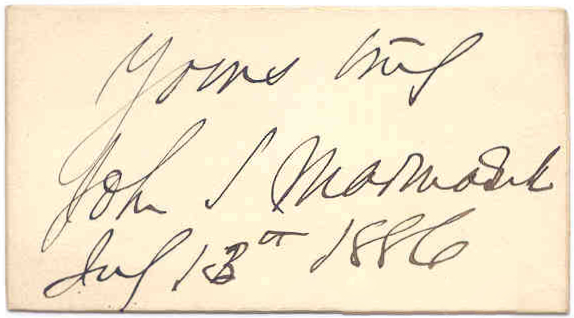 Yours truly
John S Marmaduke
July 13th 1886